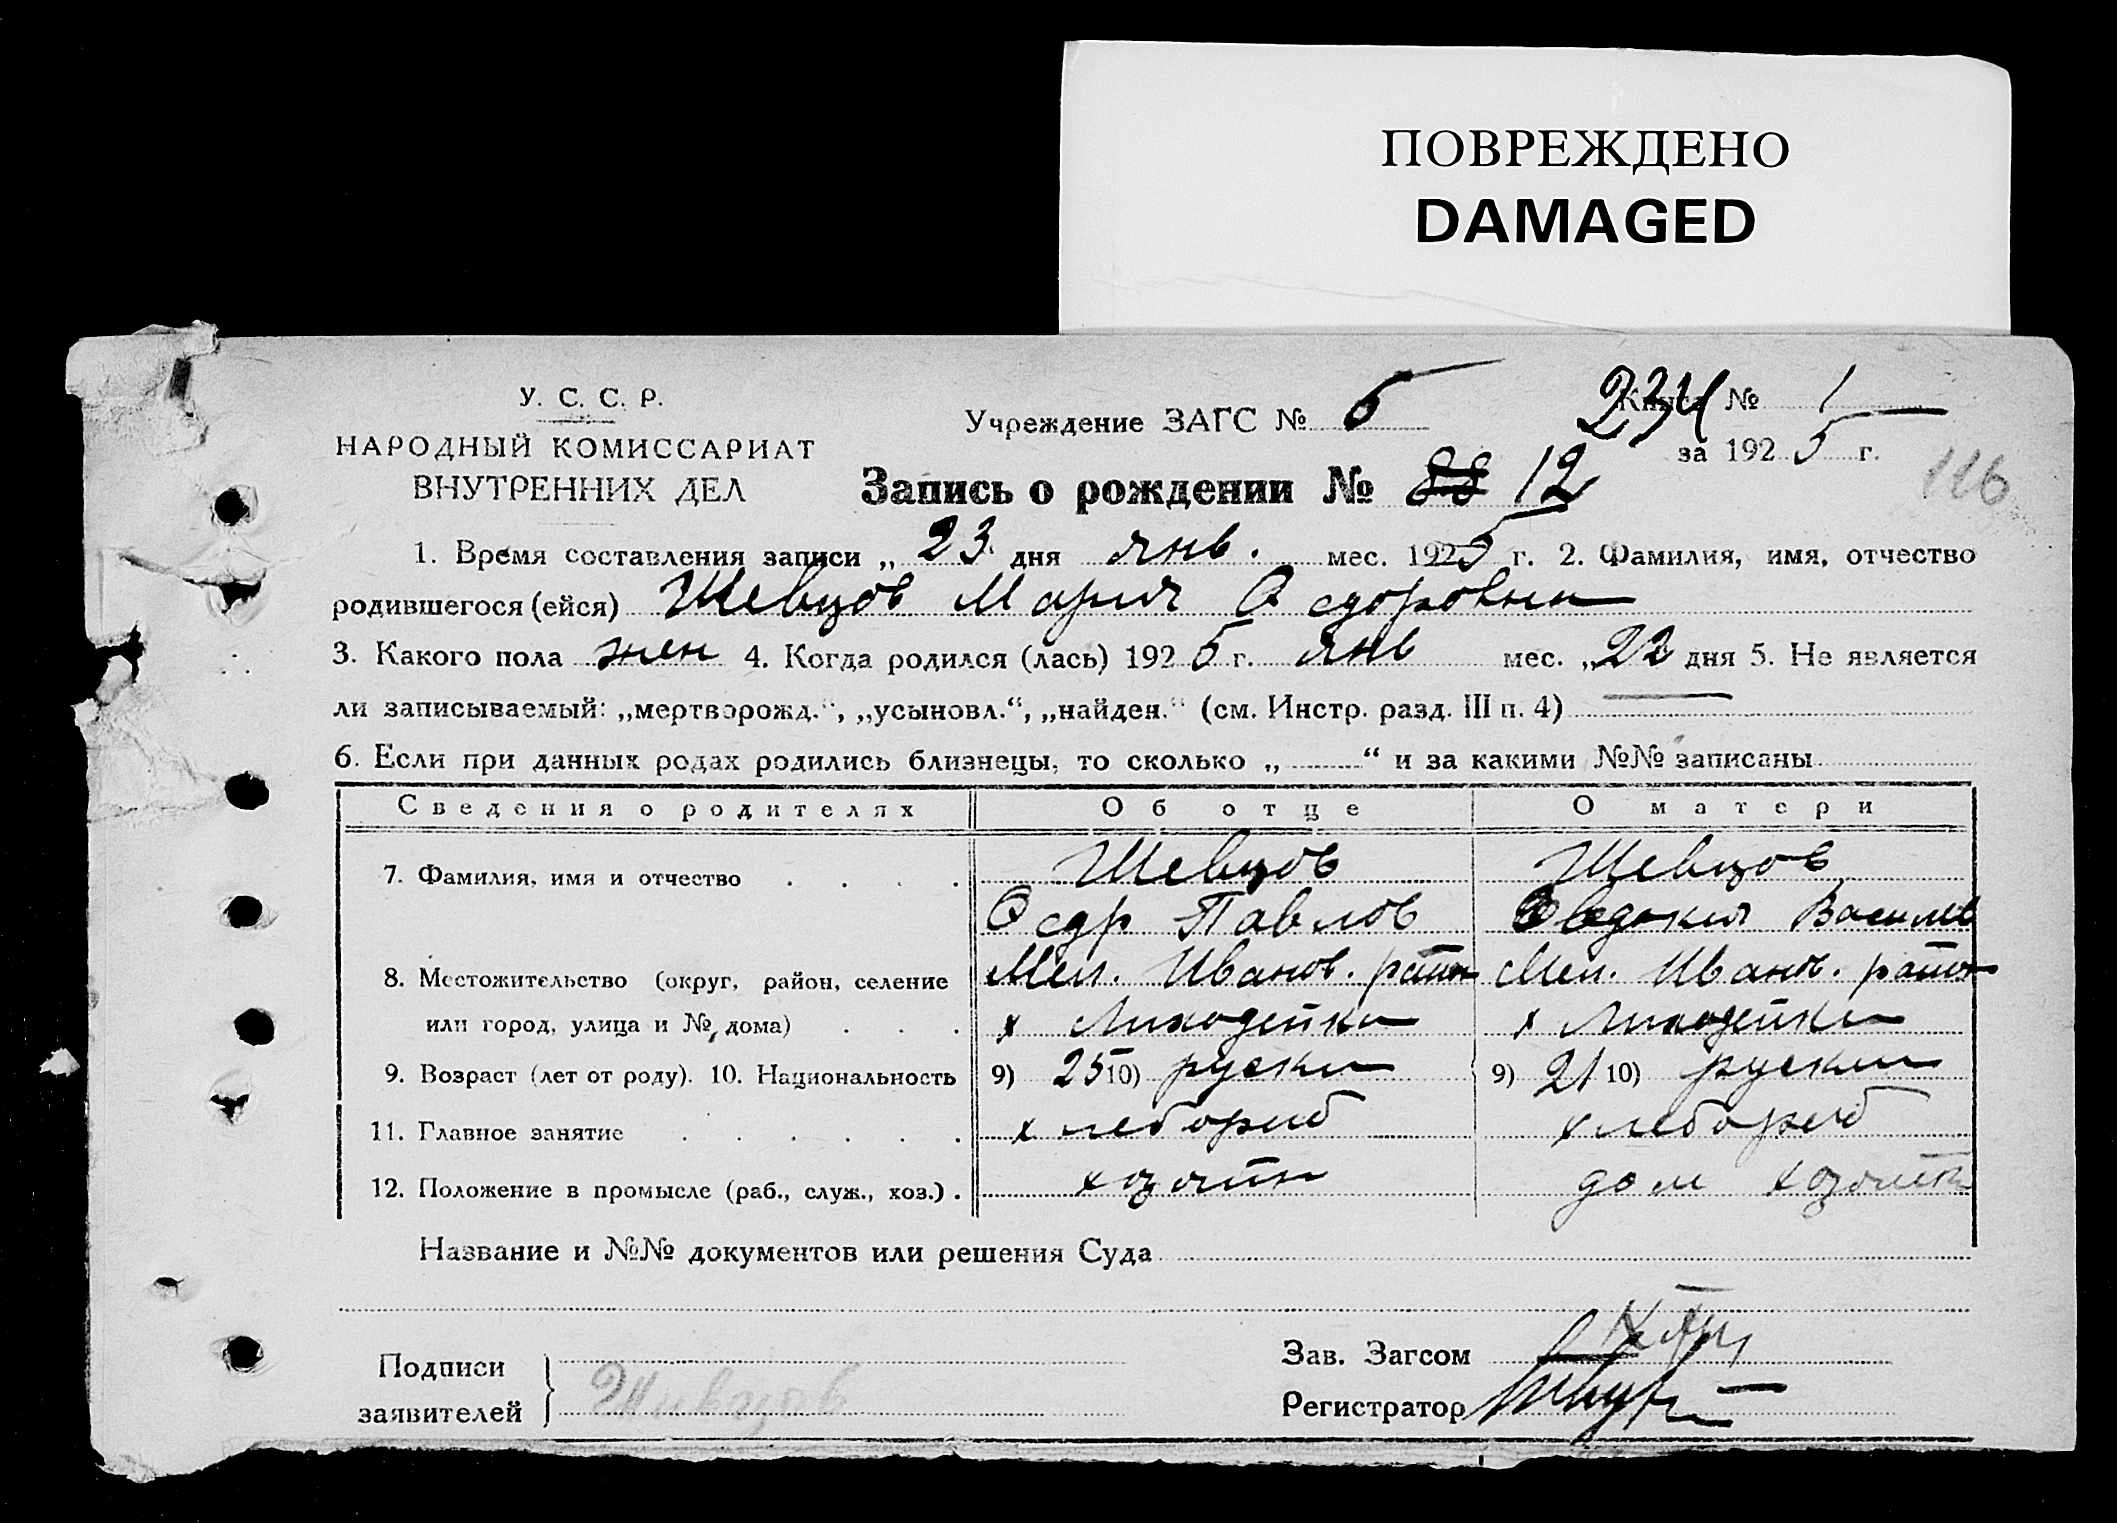 ПОВРЕЖДЕНО
DAMAGED
У. С. С. Р.
НАРОДНЫЙ КОМИССАРИАТ
ВНУТРЕННИХ ДЕЛ
Учреждение ЗАГС № 6
234
Книга № 1
за 1925 г.
116
Запись о рождении № 88 12
1. Время составления записи „ 23 дня янв. мес. 1925 г. 2. Фамилия, имя, отчество
родившегося (ейся) Шевцов Мария Ѳедоровна
3. Какого пола жен 4. Когда родился (лась) 1925 г. янв мес. „22 дня 5. Не является
ли записываемый: „мертворожд.“, „усыновл.“, „найден.“ (см. Инстр. разд. III п. 4)
6. Если при данных родах родились близнецы, то сколько „ “ и за какими №№ записаны
Сведения о родителях Об отце О матери
7. Фамилия, имя и отчество Шевцов Шевцов
Ѳедр Павлов Овдокия Васильев
8. Местожительство (округ, район, селение Мел. Иванов. район Мел. Иванов. район
или город, улица и № дома) х Лиходейки х Лиходейки
9. Возраст (лет от роду). 10. Национальность 9) 25 10) руски 9) 21 10) руски
11. Главное занятие хлебороб хлебороб
12. Положение в промысле (раб., служ., хоз.) хозяин дом хозяйк
Название и №№ документов или решения Суда
Подписи
заявителей Шивцов
Зав. Загсом
Регистратор